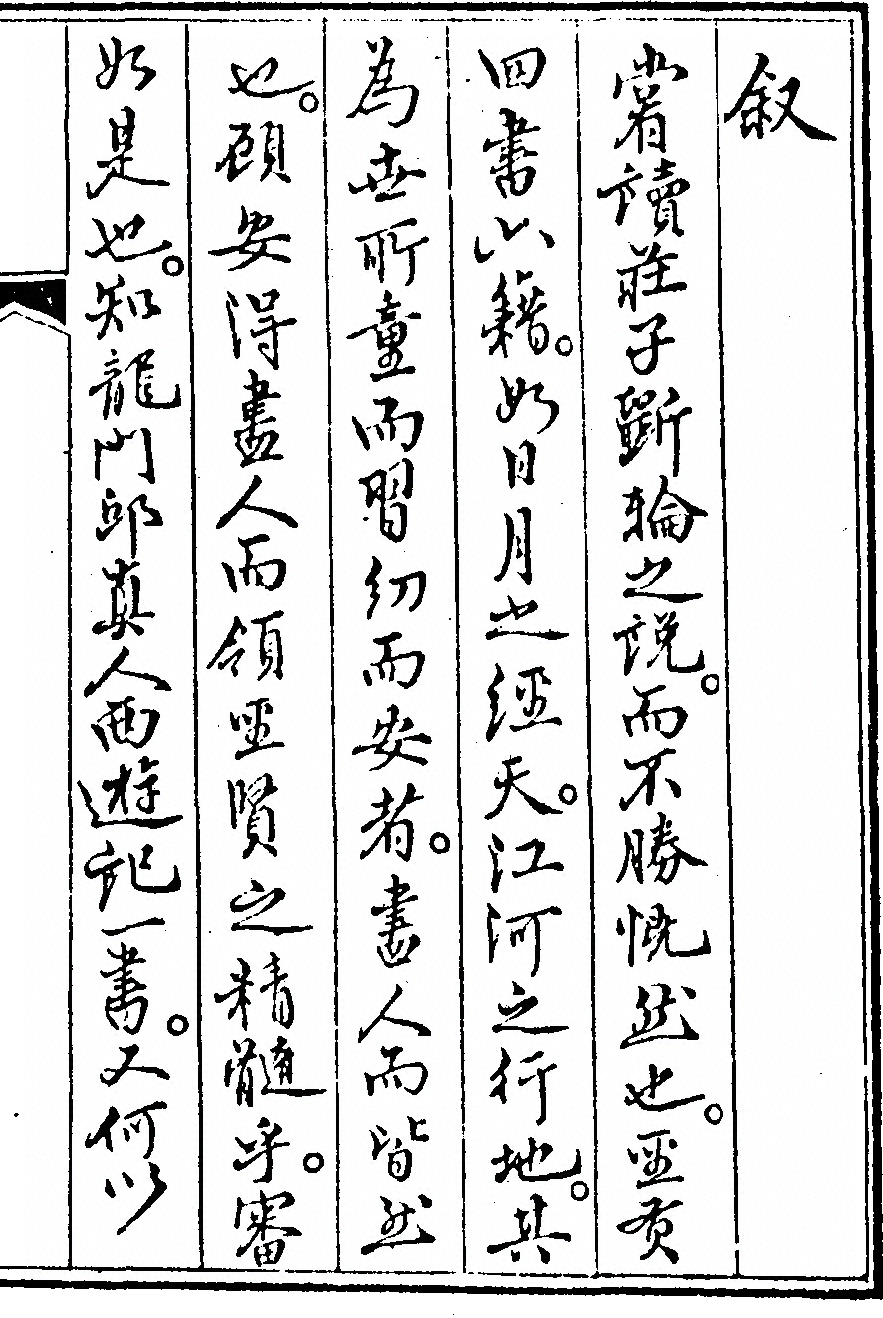 叙
嘗讀莊子斲輪之說。而不勝慨然也。聖賢
四書六籍。如日月之經天。江河之行地。其
為世所童而習幼而安者。盡人而皆然
也。顧安得盡人而領聖賢之精髓乎。審
如是也。知龍門邱真人西遊記一書。又何以